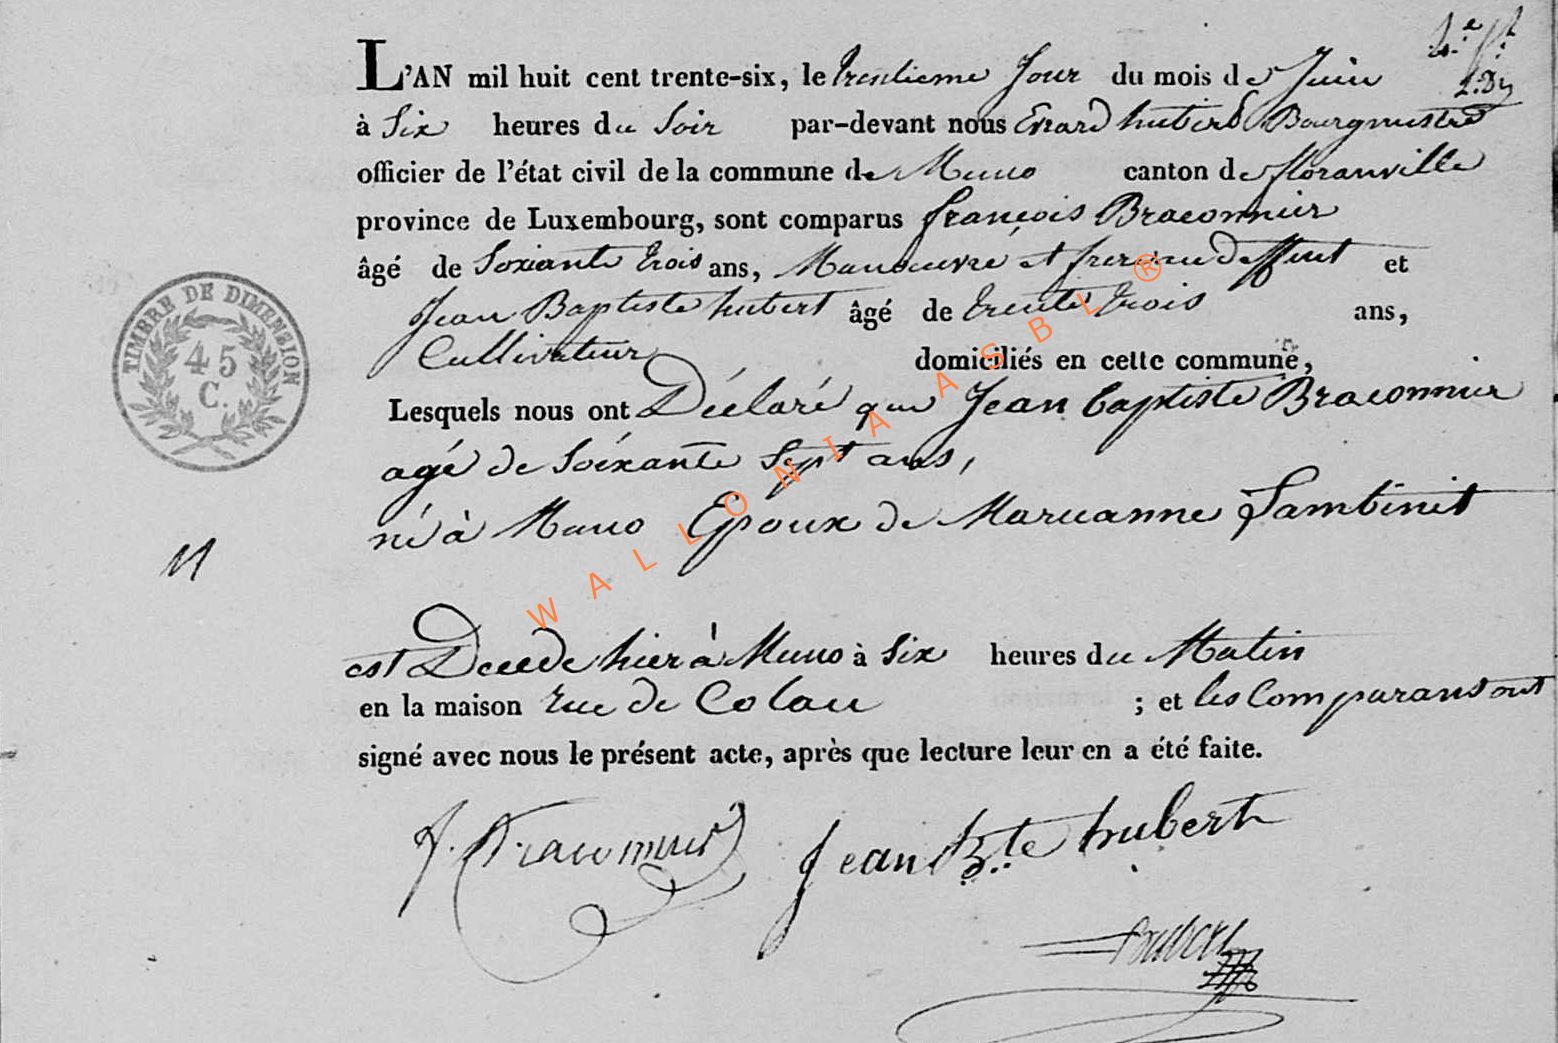 L'AN mil huit cent trente-six, le trentieme Jour du mois de Juin
à Six heures du Soir par-devant nous Evrard hubert Bourgmestre
officier de l'état civil de la commune de Muno canton de floranville
province de Luxembourg, sont comparus françois Braconnier
âgé de Soxiante trois ans, Manoeuvre et frere au deffunt et
Jean Baptiste hubert âgé de trente trois ans,
Cultivateur domiciliés en cette commune,
Lesquels nous ont Déclaré que Jean baptiste Braconnier
agé de Soixante Sept ans,
né à Muno Epoux de Marianne Lambinet
est Decede hier à Muno à Six heures du Matin
en la maison rue de Colau ; et les Comparans ont
signé avec nous le présent acte, après que lecture leur en a été faite.
f. Braconnier Jean Bte hubert
hubert
TIMBRE DE DIMENSION
45
C.
WALLONIA ASBL ®